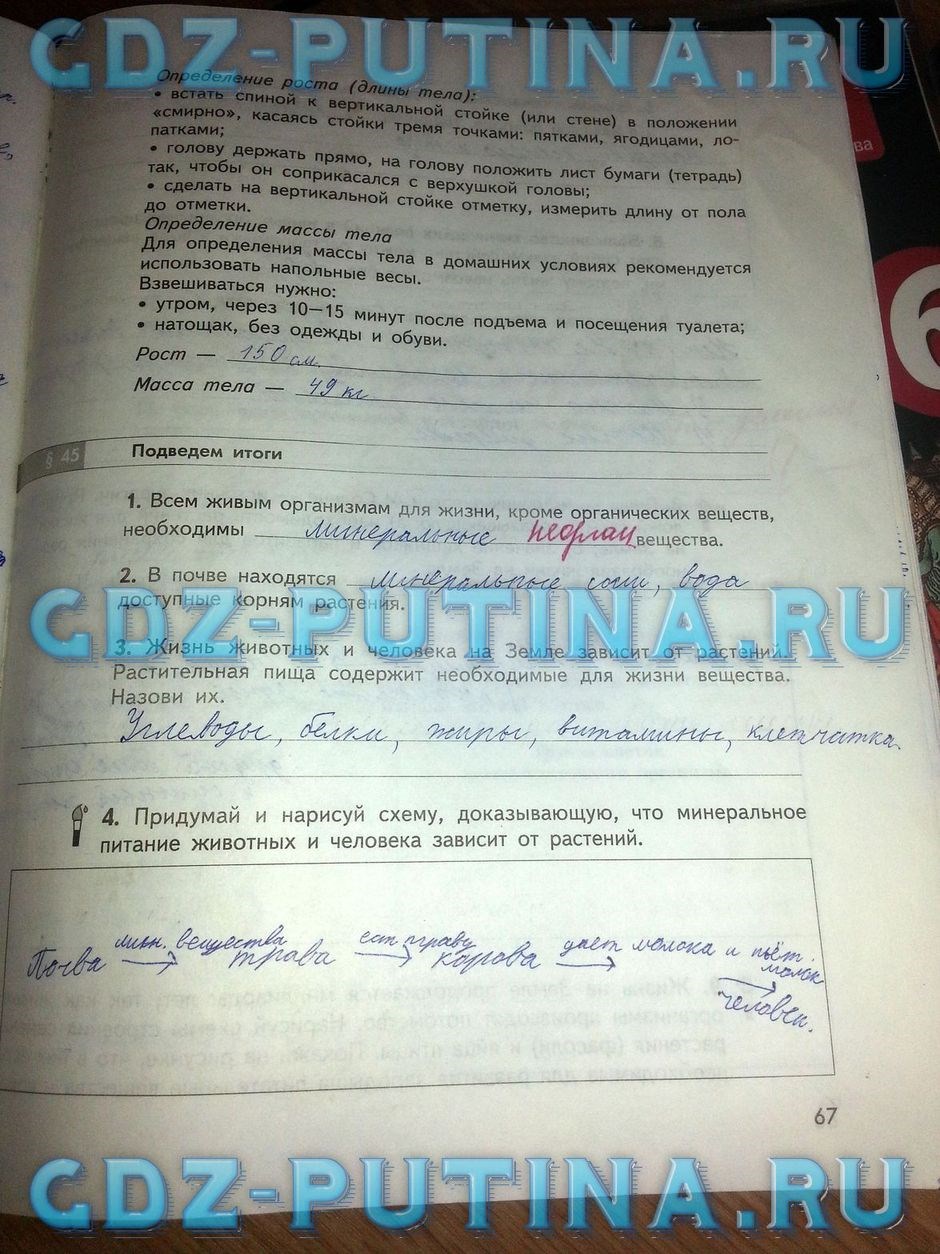 GDZ-PUTINA.RU
Определение роста (длины тела):
• встать спиной к вертикальной стойке (или стене) в положении
«смирно», касаясь стойки тремя точками: пятками, ягодицами, ло-
патками;
• голову держать прямо, на голову положить лист бумаги (тетрадь)
так, чтобы он соприкасался с верхушкой головы;
• сделать на вертикальной стойке отметку, измерить длину от пола
до отметки.
Определение массы тела
Для определения массы тела в домашних условиях рекомендуется
использовать напольные весы.
Взвешиваться нужно:
• утром, через 10—15 минут после подъема и посещения туалета;
• натощак, без одежды и обуви.
Рост — 150 см.
Масса тела — 49 кг
§ 45 Подведем итоги
1. Всем живым организмам для жизни, кроме органических веществ,
необходимы минеральные неорган вещества.
2. В почве находятся минеральные соли, вода
доступные корням растения.
GDZ-PUTINA.RU
3. Жизнь животных и человека на Земле зависит от растений.
Растительная пища содержит необходимые для жизни вещества.
Назови их.
Углеводы, белки, жиры, витамины, клетчатка.
4. Придумай и нарисуй схему, доказывающую, что минеральное
питание животных и человека зависит от растений.
Почва мин. вещества → трава ест траву → корова дает молока и пьёт →
молок →
человек.
67
GDZ-PUTINA.RU